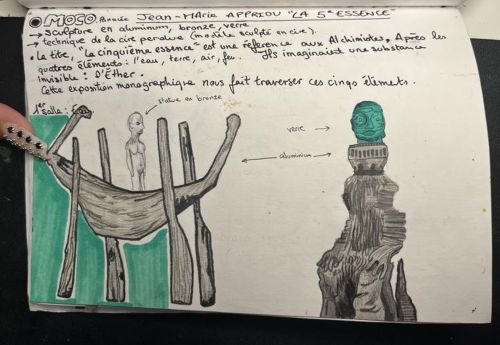 MOCO Panacée JEAN-MARIE APPRIOU "LA 5e ESSENCE"
→ sculpture en aluminum, bronze, verre
→ technique de la cire perdue (modèle sculpté en cire).
• Le titre, "La cinquième essence" est une référence aux Alchimistes. Après les
quatres éléments : l'eau, terre, air, feu. Ils imaginaient une substance
invisible : L'Éther.
Cette exposition monographique nous fait traverser ces cinqs éléments.
1er salle :
statue en bronze
verre →
aluminium